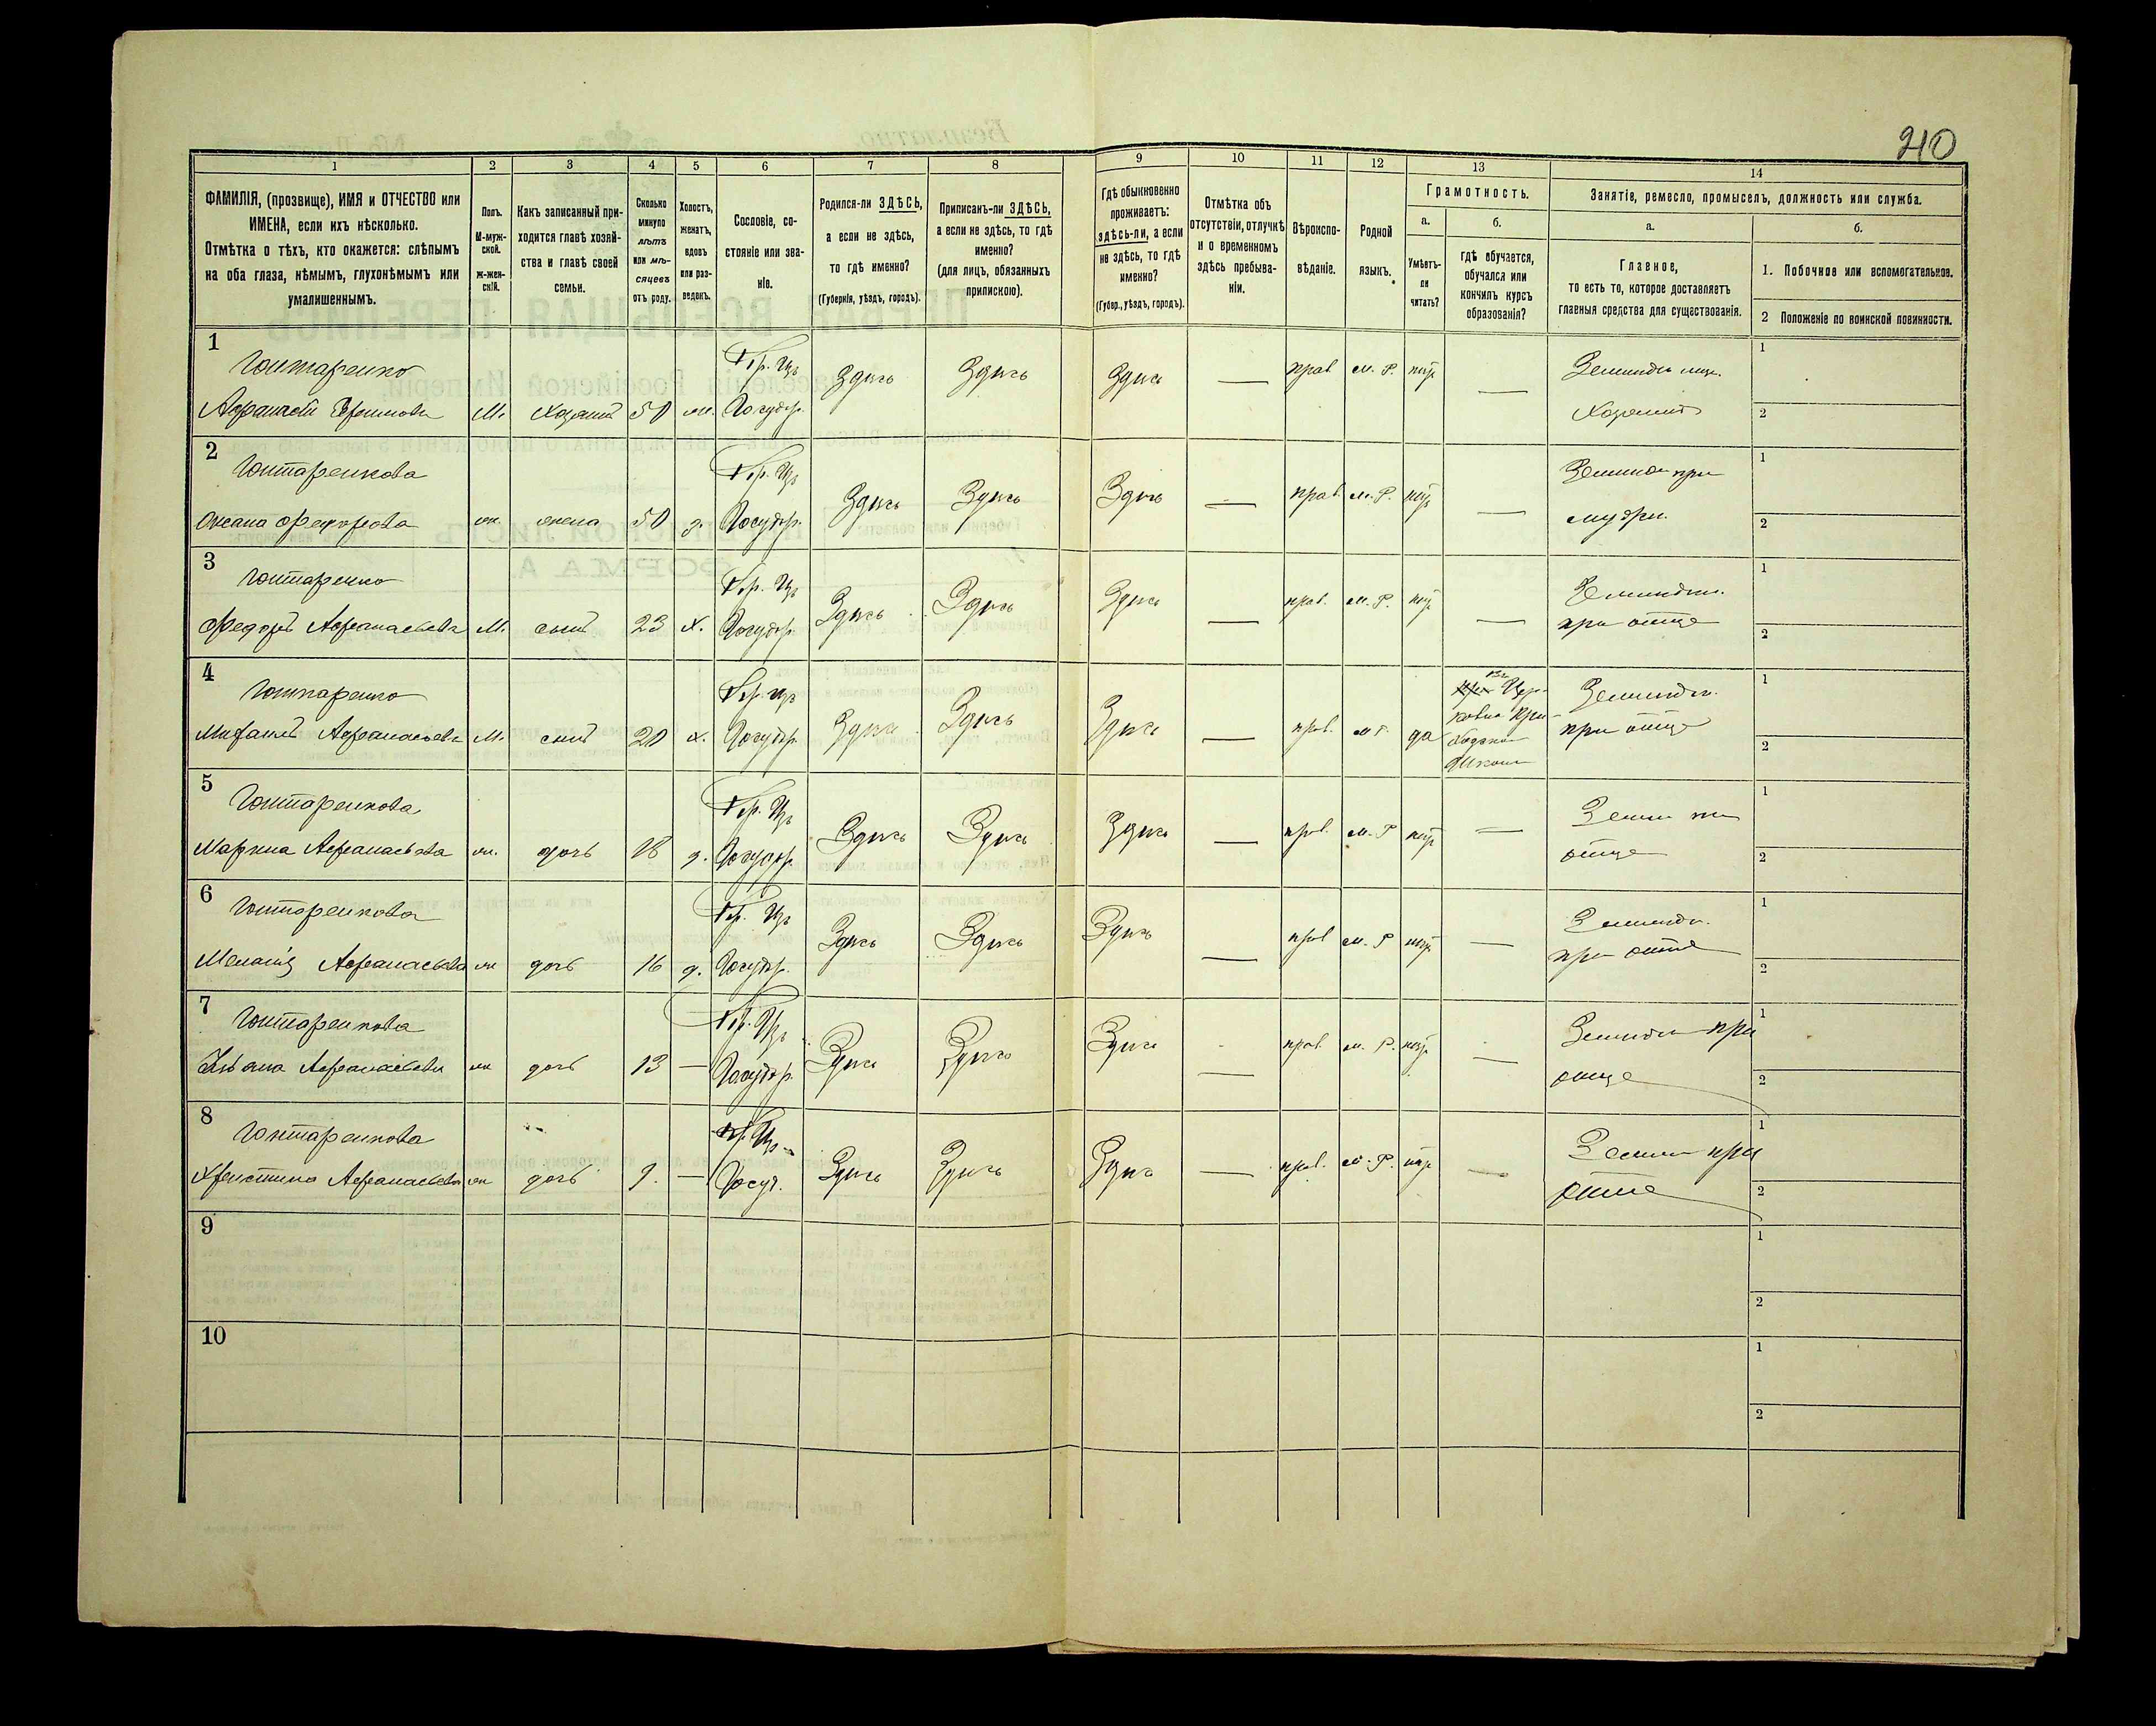 210
1 2 3 4 5 6 7 8 9 10 11 12 13 14
ФАМИЛІЯ, (прозвище), ИМЯ и ОТЧЕСТВО или
ИМЕНА, если ихъ нѣсколько.
Отмѣтка о тѣхъ, кто окажется: слѣпымъ
на оба глаза, нѣмымъ, глухонѣмымъ или
умалишеннымъ.
Полъ.
М-муж-
ской.
ж-жен-
скій.
Какъ записанный при-
ходится главѣ хозяй-
ства и главѣ своей
семьи.
Сколько
минуло
лѣтъ
или мѣ-
сяцевъ
отъ роду.
Холостъ,
женатъ,
вдовъ
или раз-
веденъ.
Сословіе, со-
стояніе или зва-
ніе.
Родился-ли ЗДѢСЬ,
а если не здѣсь,
то гдѣ именно?
(Губернія, уѣздъ, городъ).
Приписанъ-ли ЗДѢСЬ,
а если не здѣсь, то гдѣ
именно?
(для лицъ, обязанныхъ
припискою).
Гдѣ обыкновенно
проживаетъ:
здѣсь-ли, а если
не здѣсь, то гдѣ
именно?
(Губер., уѣздъ, городъ).
Отмѣтка объ
отсутствіи, отлучкѣ
и о временномъ
здѣсь пребыва-
ніи.
Вѣроиспо-
вѣданіе.
Родной
языкъ.
Грамотность.
а.
Умѣетъ-
ли
читать?
б.
гдѣ обучается,
обучался или
кончилъ курсъ
образованія?
Занятіе, ремесло, промыселъ, должность или служба.
а.
Главное,
то есть то, которое доставляетъ
главныя средства для существованія.
б.
1. Побочное или вспомогательное.
2 Положеніе по воинской повинности.
1
Гонтаренко
М. Хозяинъ 50 ж. Государ.
Здѣсь Здѣсь Здѣсь — прав. м. Р. —
Хозяинъ
1
2
2
Гонтаренкова
Оксана Федорова ж. жена 50 Государ.
Здѣсь Здѣсь Здѣсь — прав. м. Р. —
1
2
3
Гонтаренко
Федоръ Афанасьевъ М. сынъ 23 х. Государ.
Здѣсь Здѣсь Здѣсь — прав. м. Р. —
при отцѣ
1
2
4
Гонтаренко
Михаилъ Афанасьевъ М. сынъ 20 х. Государ.
Здѣсь Здѣсь Здѣсь — прав. м. Р. да
при отцѣ
1
2
5
Гонтаренкова
Марина Афанасьева ж. дочь 18 д. Государ.
Здѣсь Здѣсь Здѣсь — прав. м. Р —
отцѣ
1
2
6
Гонтаренкова
Меланія Афанасьева ж дочь 16 д. Государ.
Здѣсь Здѣсь Здѣсь — прав м. Р —
при отцѣ
1
2
7
Гонтаренкова
Афанасьева ж дочь 13 — Государ.
Здѣсь Здѣсь Здѣсь — прав. м. Р. —
при
отцѣ
1
2
8
Гонтаренкова
Христина Афанасьева ж дочь 9. — Госуд.
Здѣсь Здѣсь Здѣсь — прав. м. Р. —
при
отцѣ
1
2
9
1
2
10
1
2